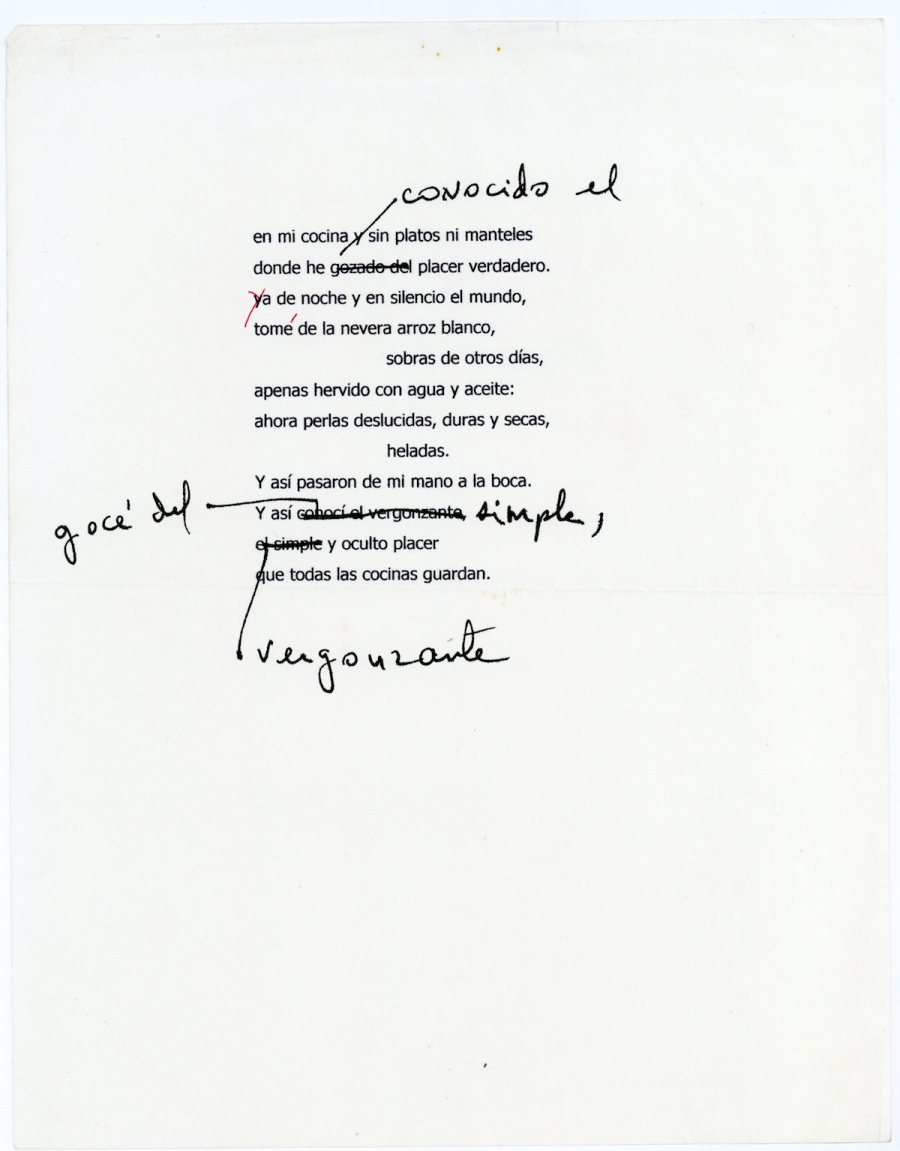 conocido el
en mi cocina y sin platos ni manteles
donde he gozado del placer verdadero.
ya de noche y en silencio el mundo,
tomé de la nevera arroz blanco,
sobras de otros días,
apenas hervido con agua y aceite:
ahora perlas deslucidas, duras y secas,
heladas.
Y así pasaron de mi mano a la boca.
gocé del
Y así conocí el vergonzante, simple,
el simple y oculto placer
que todas las cocinas guardan.
vergonzante